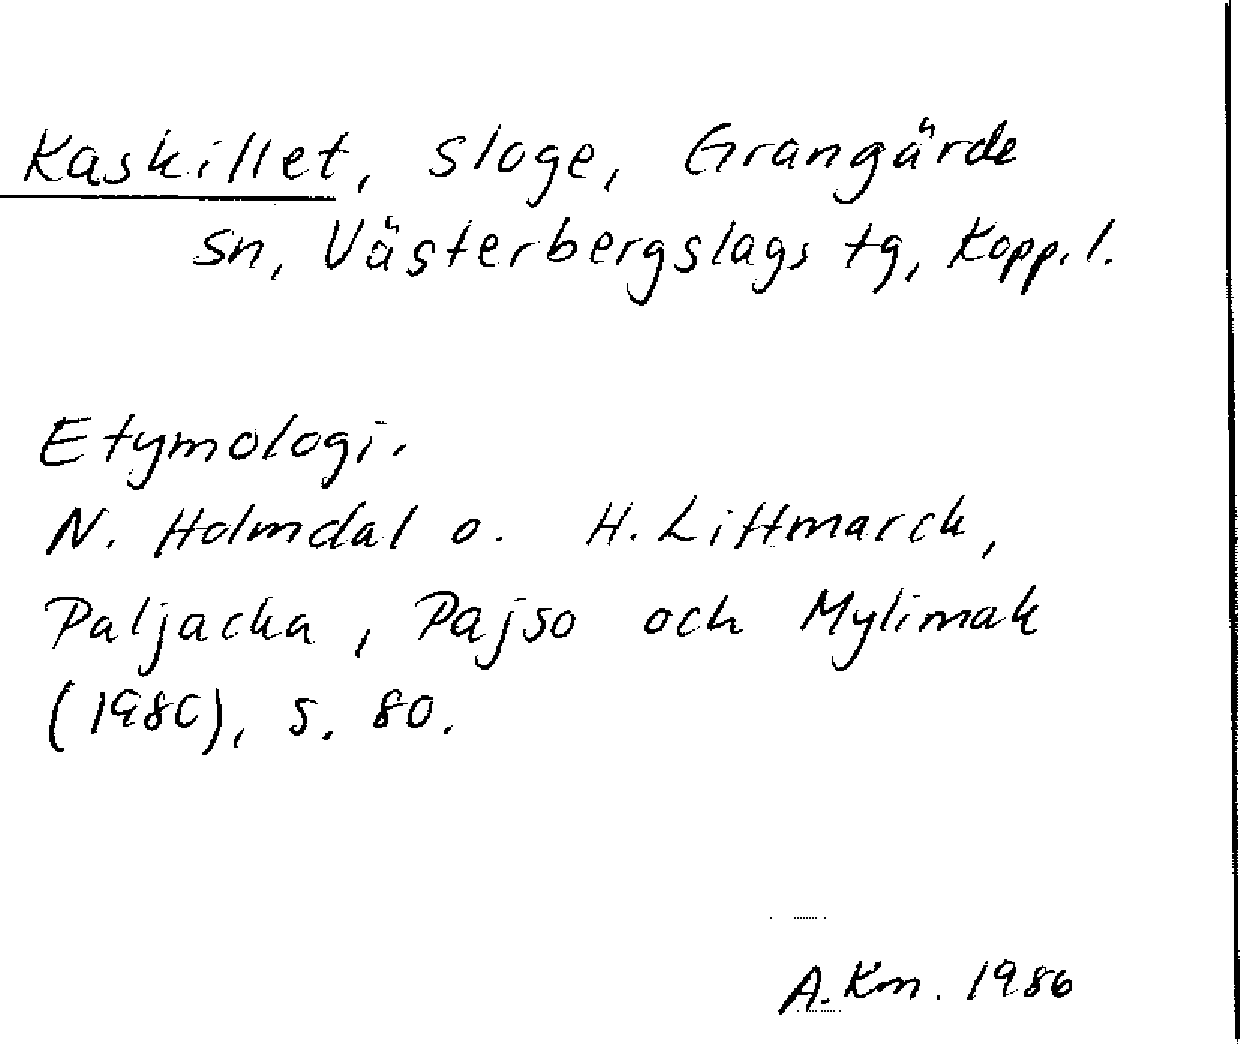 Kaskillet, Sloge, Grangärde
sn, Västerbergslags tg, Kopp. l.
Etymologi.
N. Holmdal o. H. Littmarck,
Paljacka, Pajso och Mylimak
(1980), s. 80.
A. Km. 1986